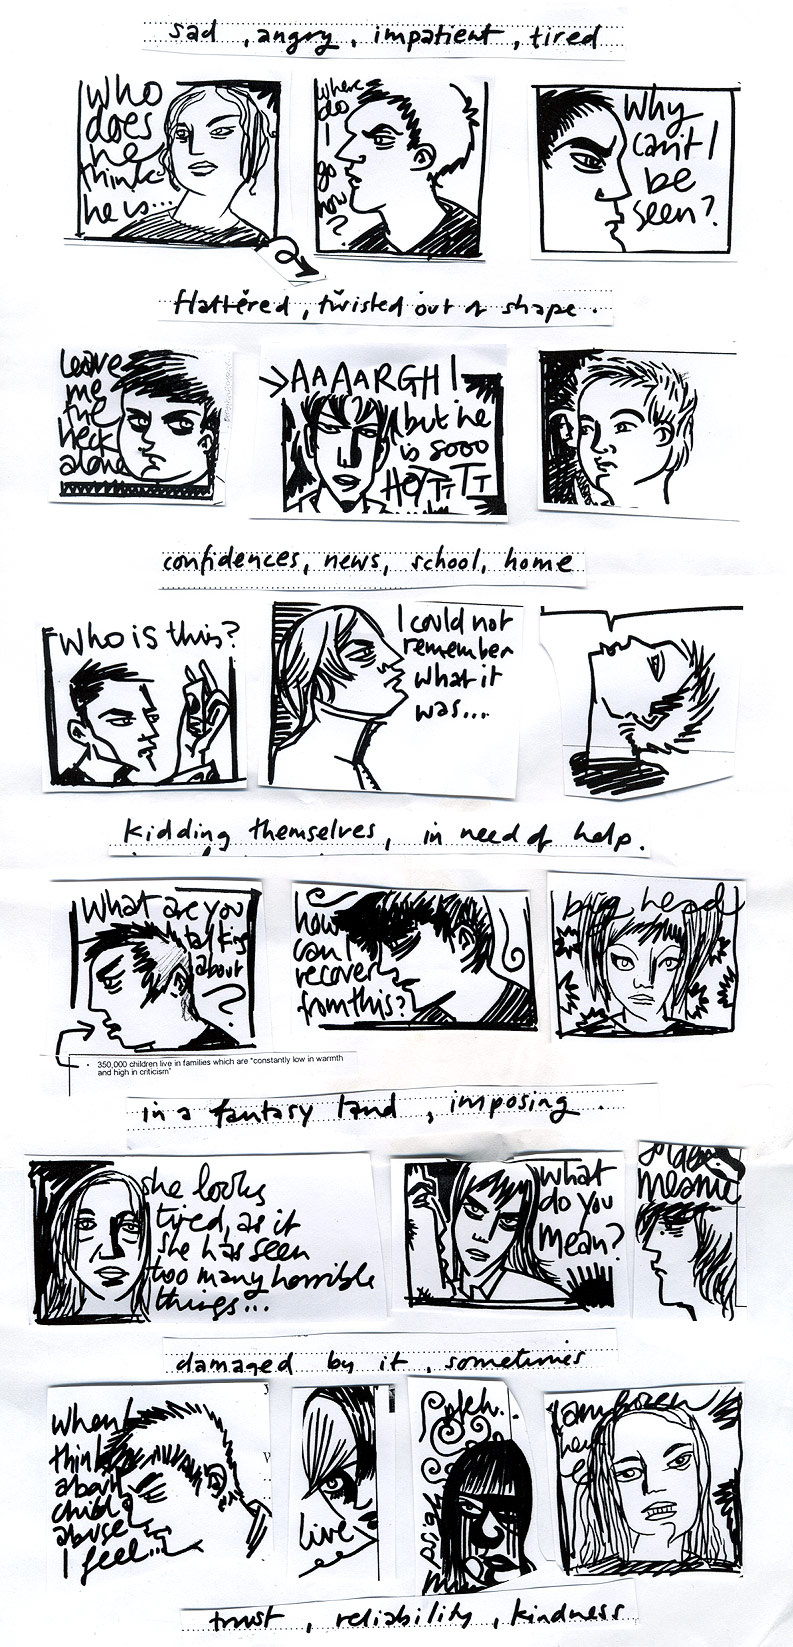 sad, angry, impatient, tired
who
does
he
think
he is...
where
do
I
go
now
?
Why
can't I
be
seen?
flattered, twisted out of shape.
Leave
me
the
heck
alone
AAAARGH!
but he
is sooo
HOTTTT
confidences, news, school, home
Who is this?
I could not
remember
what it
was...
kidding themselves, in need of help.
What are you
talking
about
?
how
can I
recover
from this?
big head
350,000 children live in families which are "constantly low in warmth
and high in criticism"
in a fantasy land, imposing.
she looks
tired, as if
she has seen
too many horrible
things...
what
do you
mean?
meanie
damaged by it, sometimes
when I
think
about
child
abuse
I feel...
live
I am frozen
trust, reliability, kindness